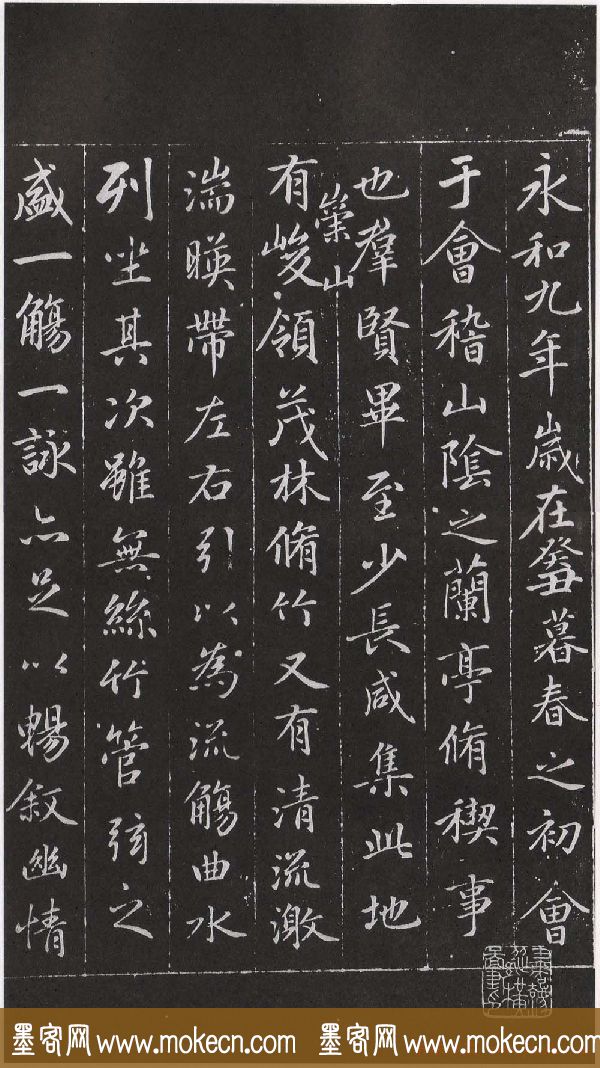 永和九年歲在癸丑暮春之初會
于會稽山陰之蘭亭脩稧事
也羣賢畢至少長咸集此地
有崇山峻領茂林脩竹又有清流激
湍暎帶左右引以為流觴曲水
列坐其次雖無絲竹管弦之
盛一觴一詠亦足以暢叙幽情
墨客网 www.mokecn.com 墨客网 www.mokecn.com